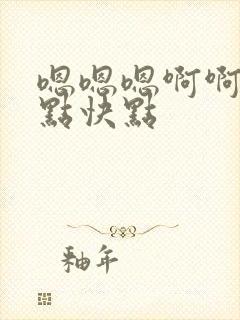 嗯嗯嗯啊啊
點快點
釉年